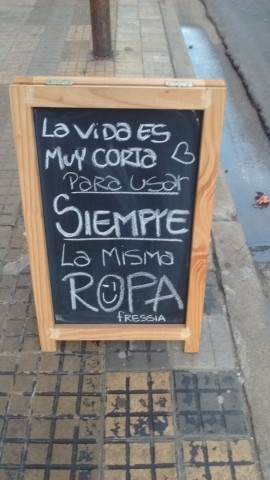 La vida es
muy corta
Para usar
SIEMPRE
La misma
ROPA
fressia